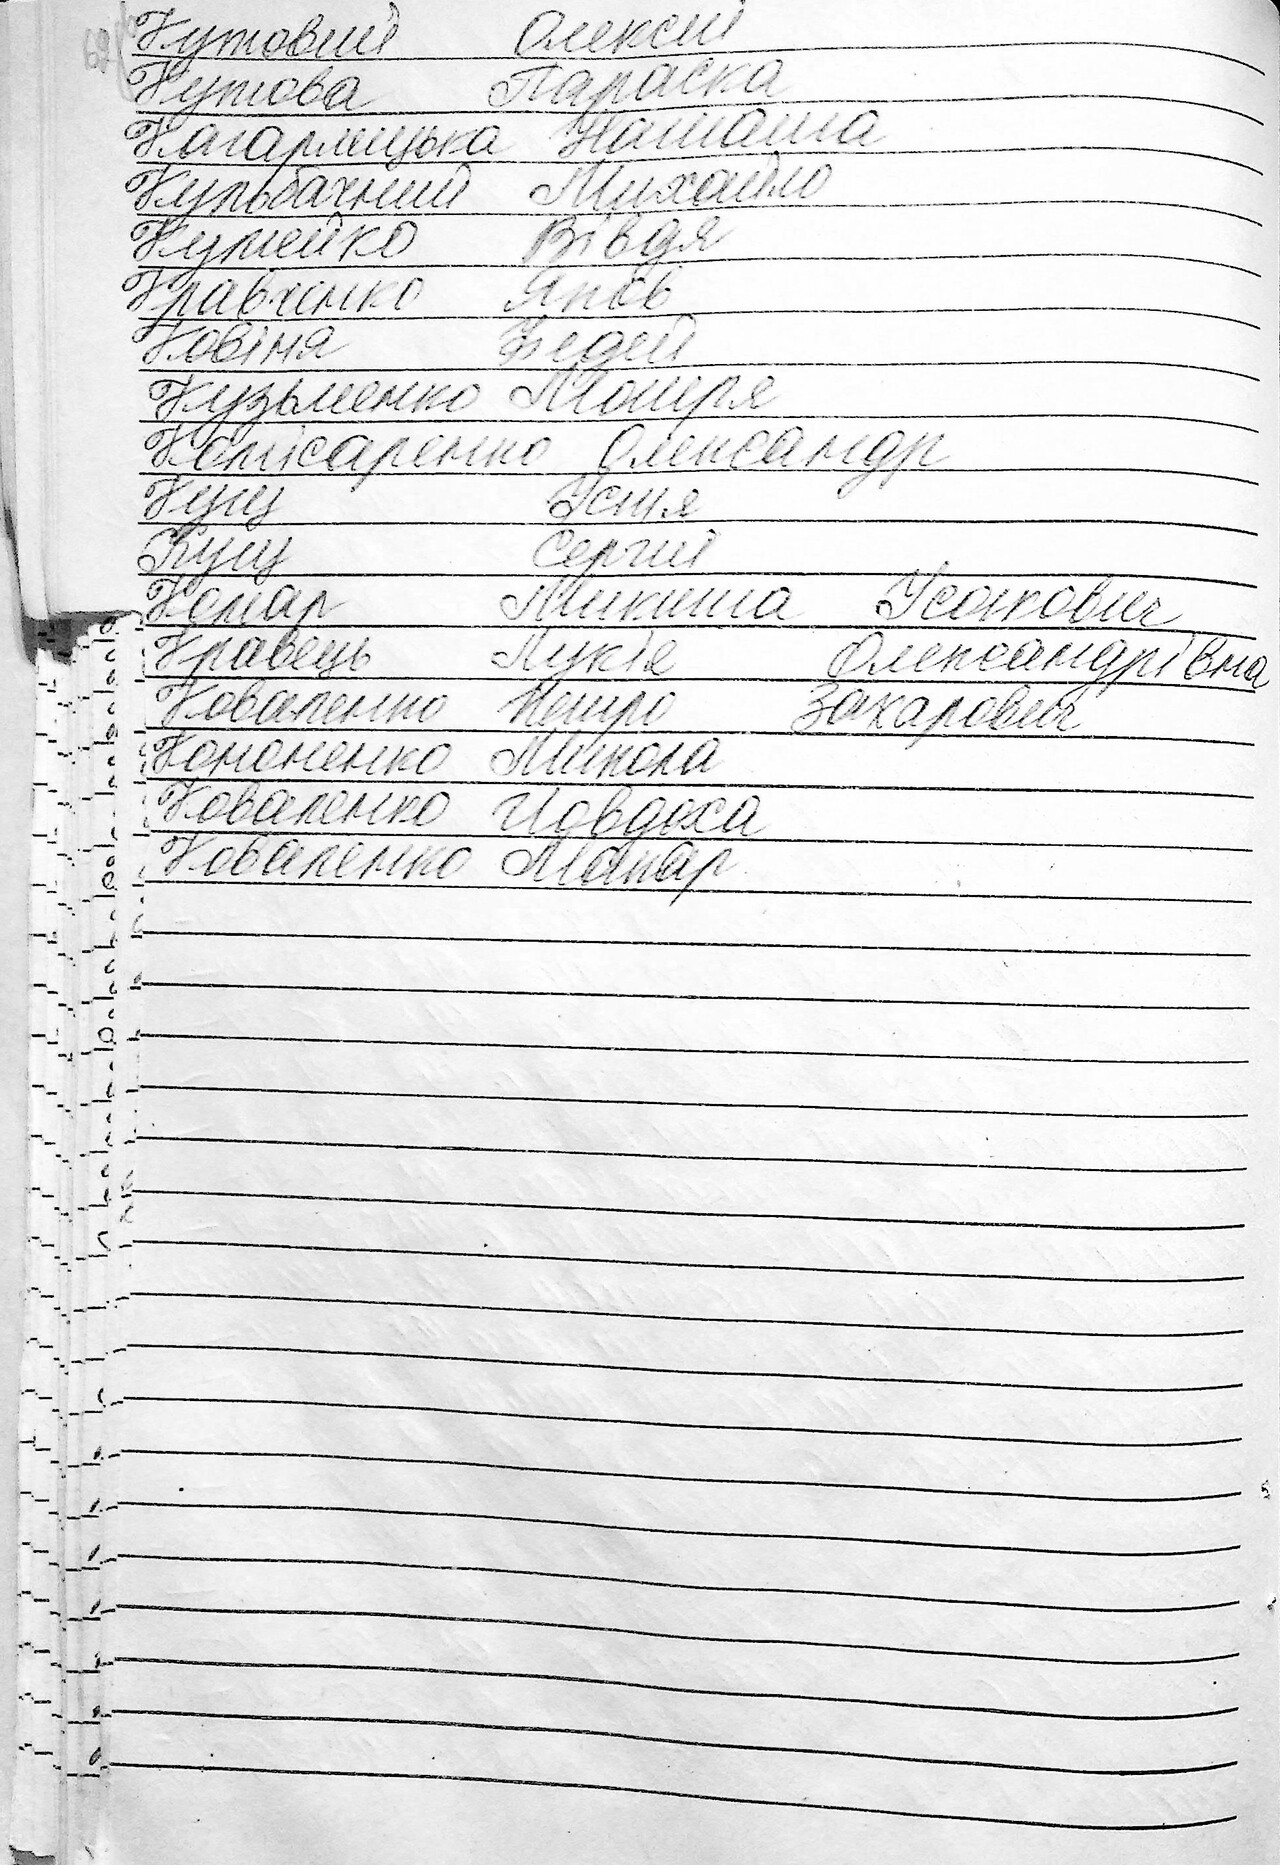 Кутовий Олексій
Кутова Параска
Кагарлицька Наталка
Кульбачний Михайло
Кумейко Вівдя
Кравченко Яков
Ковіня Федей
Кузьменко Мотря
Комісаренко Олександр
Кущ Устя
Кущ Сергій
Комар Микита Усакович
Кравець Лукія Олександрівна
Коваленко Петро Захарович
Кононенко Микола
Коваленко Йовдоха
Коваленко Макар